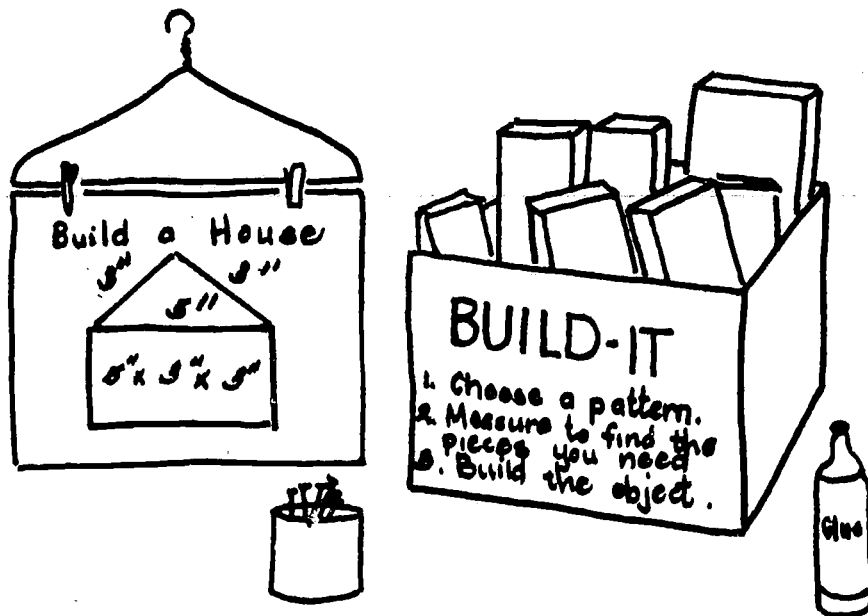 Build a House
3" 3"
5"
5" x 3" x 3"
BUILD-IT
1. Choose a pattern.
2. Measure to find the
pieces you need
3. Build the object.
Glue